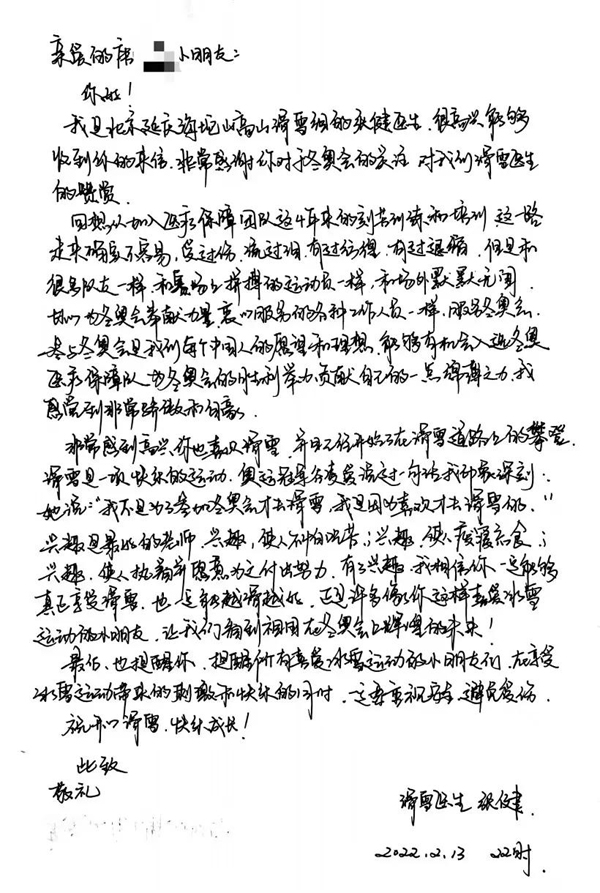 亲爱的席 小朋友：
你好！
我是北京延庆海坨山高山滑雪组的张健医生，很高兴能够
收到你的来信，非常感谢你对于冬奥会的关注，对我们滑雪医生
的赞赏。
回想从加入医疗保障团队这4年来的刻苦训练和培训，这一路
走来确实不容易，受过伤，流过泪，有过彷徨，有过退缩，但是和
很多队友一样，和赛场上拼搏的运动员一样，和场外默默无闻，
甘心为冬奥会奉献力量衷心服务的各种工作人员一样，服务冬奥会，
参与冬奥会是我们每个中国人的愿望和理想，能够有机会入选冬奥
医疗保障队，为冬奥会的胜利举办贡献自己的一点绵薄之力，我
感觉到非常骄傲和自豪。
非常感到高兴，你也喜欢滑雪，并且已经开始了在滑雪道路上的攀登，
滑雪是一项快乐的运动，奥运冠军谷爱凌说过一句话我印象深刻：
她说：“我不是为了参加冬奥会才去滑雪，我是因为喜欢才去滑雪的。”
兴趣是最好的老师，兴趣，使人不怕吃苦；兴趣，使人废寝忘食；
兴趣，使人执着前愿意为之付出努力，有了兴趣，我相信你一定能够
真正享受滑雪，也一定能越滑越好，正是许多像你这样喜爱冰雪
运动的小朋友，让我们看到祖国在冬奥会上辉煌的未来！
最后，也提醒你，提醒所有喜爱冰雪运动的小朋友们，在享受
冰雪运动带来的刺激和快乐的同时，一定要重视安全，避免受伤。
祝开心滑雪，快乐成长！
此致
敬礼
滑雪医生 张健
2022.2.13 22时